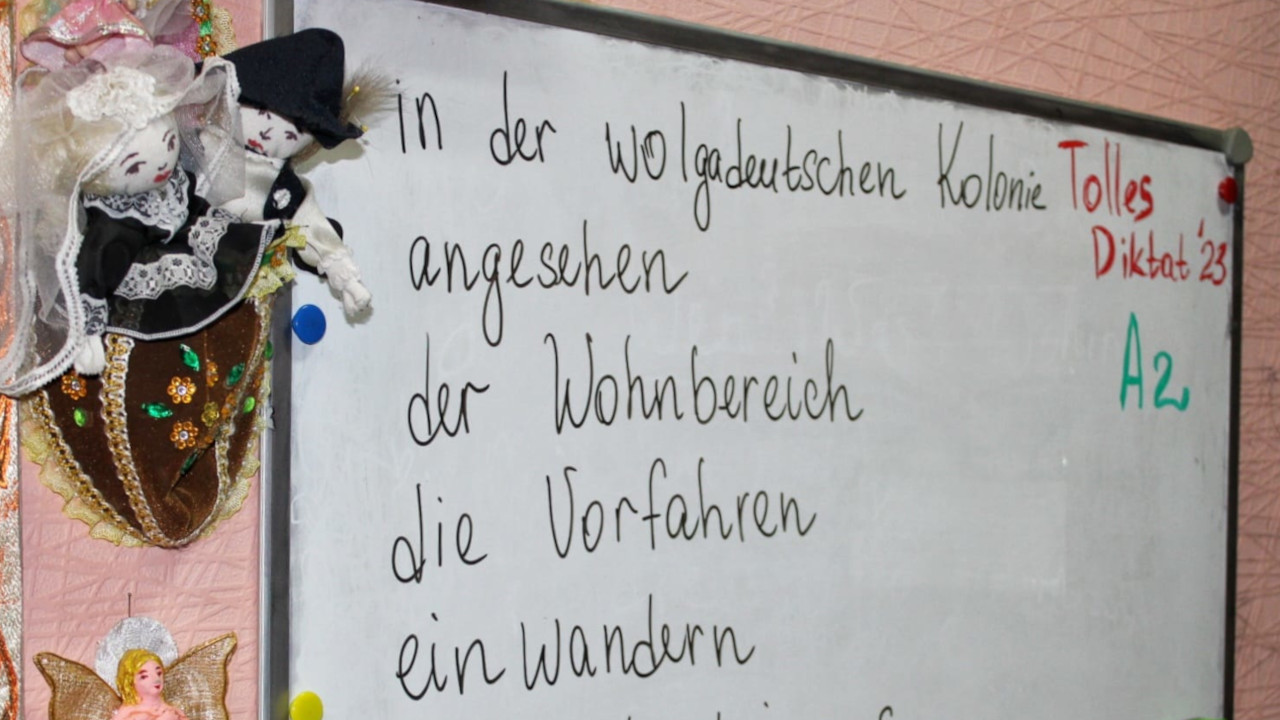 in der wolgadeutschen Kolonie
angesehen
der Wohnbereich
die Vorfahren
einwandern
Tolles
Diktat '23
A2